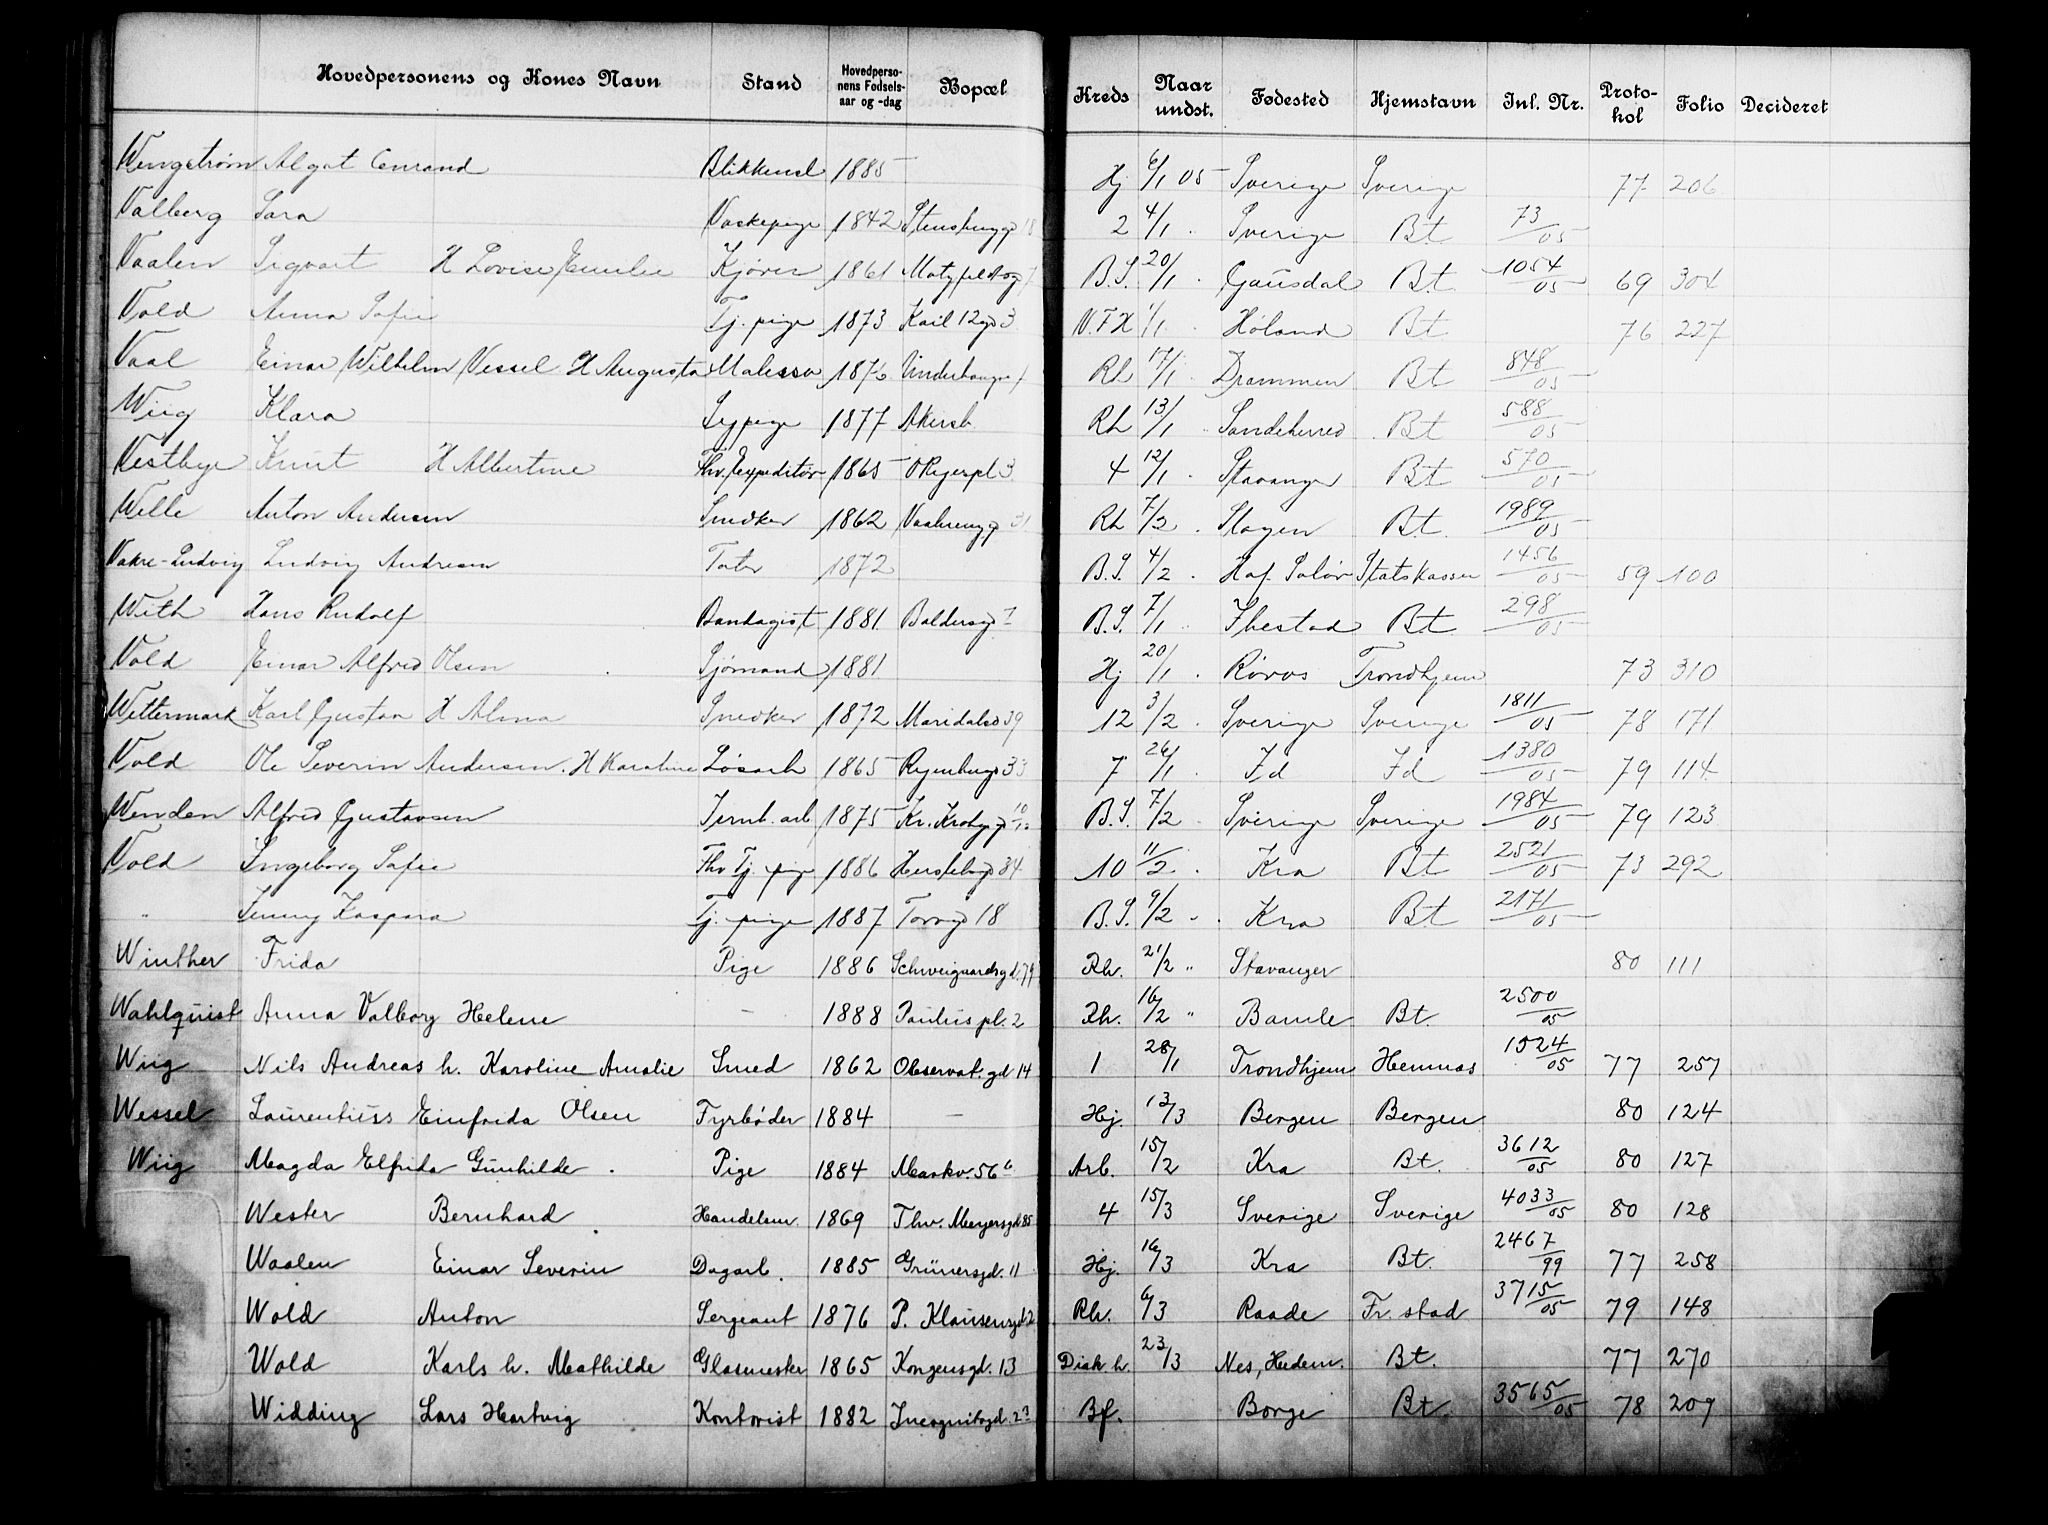 Hovedpersonens og Kones Navn Stand Hovedperso-nens Fødsels-aar og -dag Bopæl Kreds Naar undst. Fødested Hjemstavn Inl. Nr. Proto-kol Folio Decideret
Wengstrøm Algot Conrand Blikkensl 1885 Hj 6/1 05 Sverige Sverige 77 206
Valberg Sara Vaskepige 1842 Stensbergg 18 2 4/1 Sverige Bt 73/05
Vaalen Sigvart H Lovise Emilie Kjører 1861 B.S. 20/1 Gausdal Bt 1054/05 69 304
Vold Anna Sofie Tj. pige 1873 3 V.F.H 1/1 Høland Bt 76 227
Vaal Einar Wilhelm Wessel H Augusta Malersv 1876 Rh 17/1 Drammen Bt 848/05
Wiig Klara Sypige 1877 Akersb Rh 13/1 Sandeherred Bt 588/05
Vestbye Knut H Albertine Fhv. Expeditør 1865 O Ryerpl 3 4 12/1 Stavanger Bt 570/05
Welle Anton Andersen Snedker 1862 Vaalerengg 31 Rh 7/2 Skogen Bt 1989/05
Vakre-Ludvig Ludvig Andresen Tater 1872 B.S. 4/2 Hof. Solør Statskassen 1456/05 59 100
With Hans Rudolf Bandagist 1881 Baldersgd 7 B.S. 7/1 Ibestad Bt 298/05
Vold Einar Alfred Olsen Sjømand 1881 Hj 20/1 Røros Trondhjem 73 310
Wettermark Karl Gustav H Alma Snedker 1872 Maridalsv 39 12 3/2 Sverige Sverige 1811/05 78 171
Vold Ole Severin Andersen. H Karoline Løsarb 1865 Ryenbergv 33 7 26/1 Id Id 1380/05 79 114
Wenden Alfred Gustavsen Jernb. arb 1875 Kr. Krohgg 10/12 B.S. 7/2 Sverige Sverige 1984/05 79 123
Vold Ingeborg Sofie Fhv Tj. pige 1886 Herslebsgd 34 10 11/2 Kra Bt 2521/05 73 292
" Jenny Kaspara Tj. pige 1887 Torvgd 18 B.S. 9/2 Kra Bt 2171/05
Winther Frida Pige 1886 Schweigaardsgd. 79 Rh. 21/2 " Stavanger 80 111
Wahlquist Anna Valborg Helene — 1888 Paulus pl. 2 Rh. 16/2 " Bamle Bt. 2500/05
Wiig Nils Andreas h. Karoline Amalie Smed 1862 Observat. gd 14 1 28/1 Trondhjem Hemnæs 1524/05 77 257
Wessel Laurentius Einfrida Olsen Fyrbøder 1884 — Hj. 13/3 Bergen Bergen 80 124
Wiig Magda Elfrida Gunhilde Pige 1884 Markv. 56 b Arb. 15/2 Kra Bt. 3612/05 80 127
Wester Bernhard Handelsm. 1869 Thv. Meyersgd 85 4 15/3 Sverige Sverige 4033/05 80 128
Waalen Einar Severin Dagarb. 1885 Grünersgd. 11 Hj. 16/3 Kra Bt. 2467/99 77 258
Wold Anton Sergeant 1876 P. Klausensgd. 2 Rh. 6/3 Raade Fr. stad 3715/05 79 148
Wold Karls h. Mathilde Glasmester 1865 Kongensgd. 13 Diak h. 23/3 Nes, Hedem. Bt. 77 270
Widding Lars Hartvig Kontorist 1882 Incognitogd. 23 Bf. Borge Bt. 3565/05 78 209